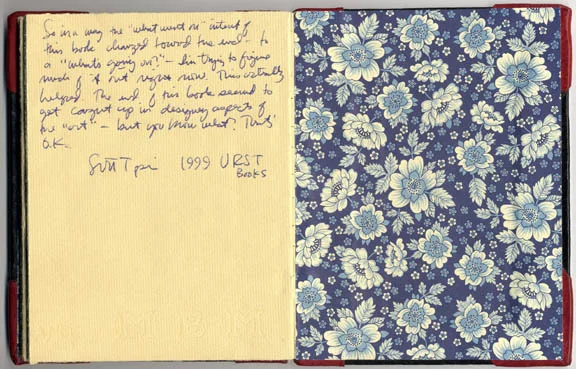 So in a way the "what went on" intent of
this book changed toward the end - to
a "what's going on?" - I'm trying to figure
much of it out right now. This actually
helped. The end of this book seemed to
get caught up in designing aspects of
the "art" - but you know what? That's
O.K.
1999 URST
BOOKS